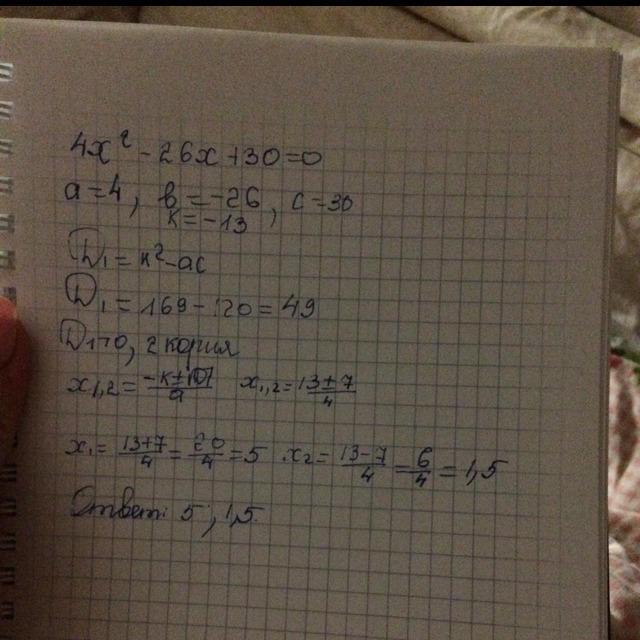 4x² - 26x + 30 = 0
a = 4, b = -26, c = 30
k = -13
D₁ = k² - ac
D₁ = 169 - 120 = 49
D₁ > 0, 2 корня
x₁,₂ = (-k ± √D₁)/a x₁,₂ = (13 ± 7)/4
x₁ = (13+7)/4 = 20/4 = 5 x₂ = (13-7)/4 = 6/4 = 1,5
Ответ: 5, 1,5.